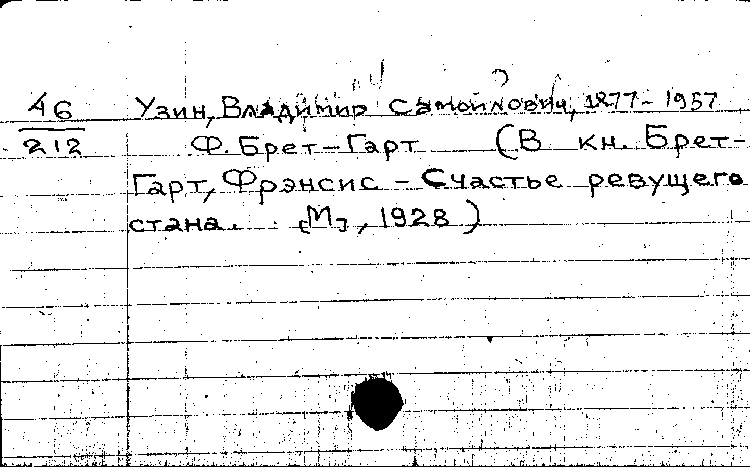 А6
212
Узин, Владимир Самойлович, 1877-1957
Ф. Брет-Гарт (В кн. Брет-
Гарт, Фрэнсис - Счастье ревущего
стана. [М], 1928)